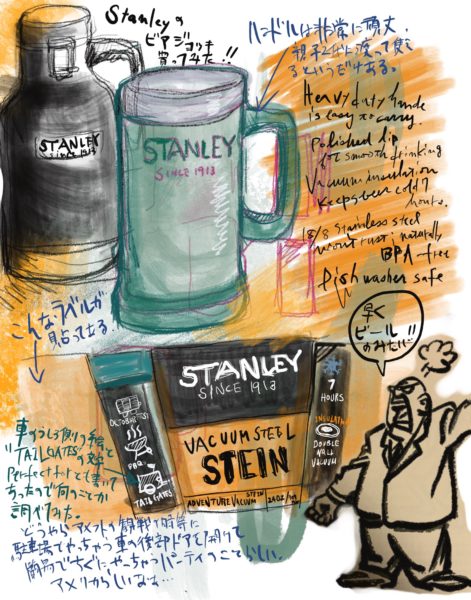 Stanleyの
ビアジョッキ
買ってみた!!
ハンドルは非常に頑丈.
親子2代に渡って使え
るというだけある。
STANLEY
SINCE 1913
STANLEY
SINCE 1913
Heavy duty handle
is easy to carry.
polished lip
for smooth drinking
Vacuum insulation
keeps beer cold 7
hours.
18/8 stainless steel
wont rust; naturally
BPA-free
Dishwasher safe
こんなラベルが
貼ってある.
早く
ビール
のみたい!!
STANLEY
SINCE 1913
VACUUM STEEL
STEIN
ADVENTURE VACUUM STEIN
24OZ
OCTOBERFEST
BBQ
TAILGATES
7
HOURS
INSULATION
DOUBLE
WALL
VACUUM
車のうしろ側の絵
"TAILGATES"の文字
Perfect for と書いて
あったので何のことか
調べてみた。
どうやらアメフトの観戦の時等に
駐車場でやっちゃう車の後部ドアを開けて
やっちゃうパーティのことらしい.
アメリカらしいなぁ…